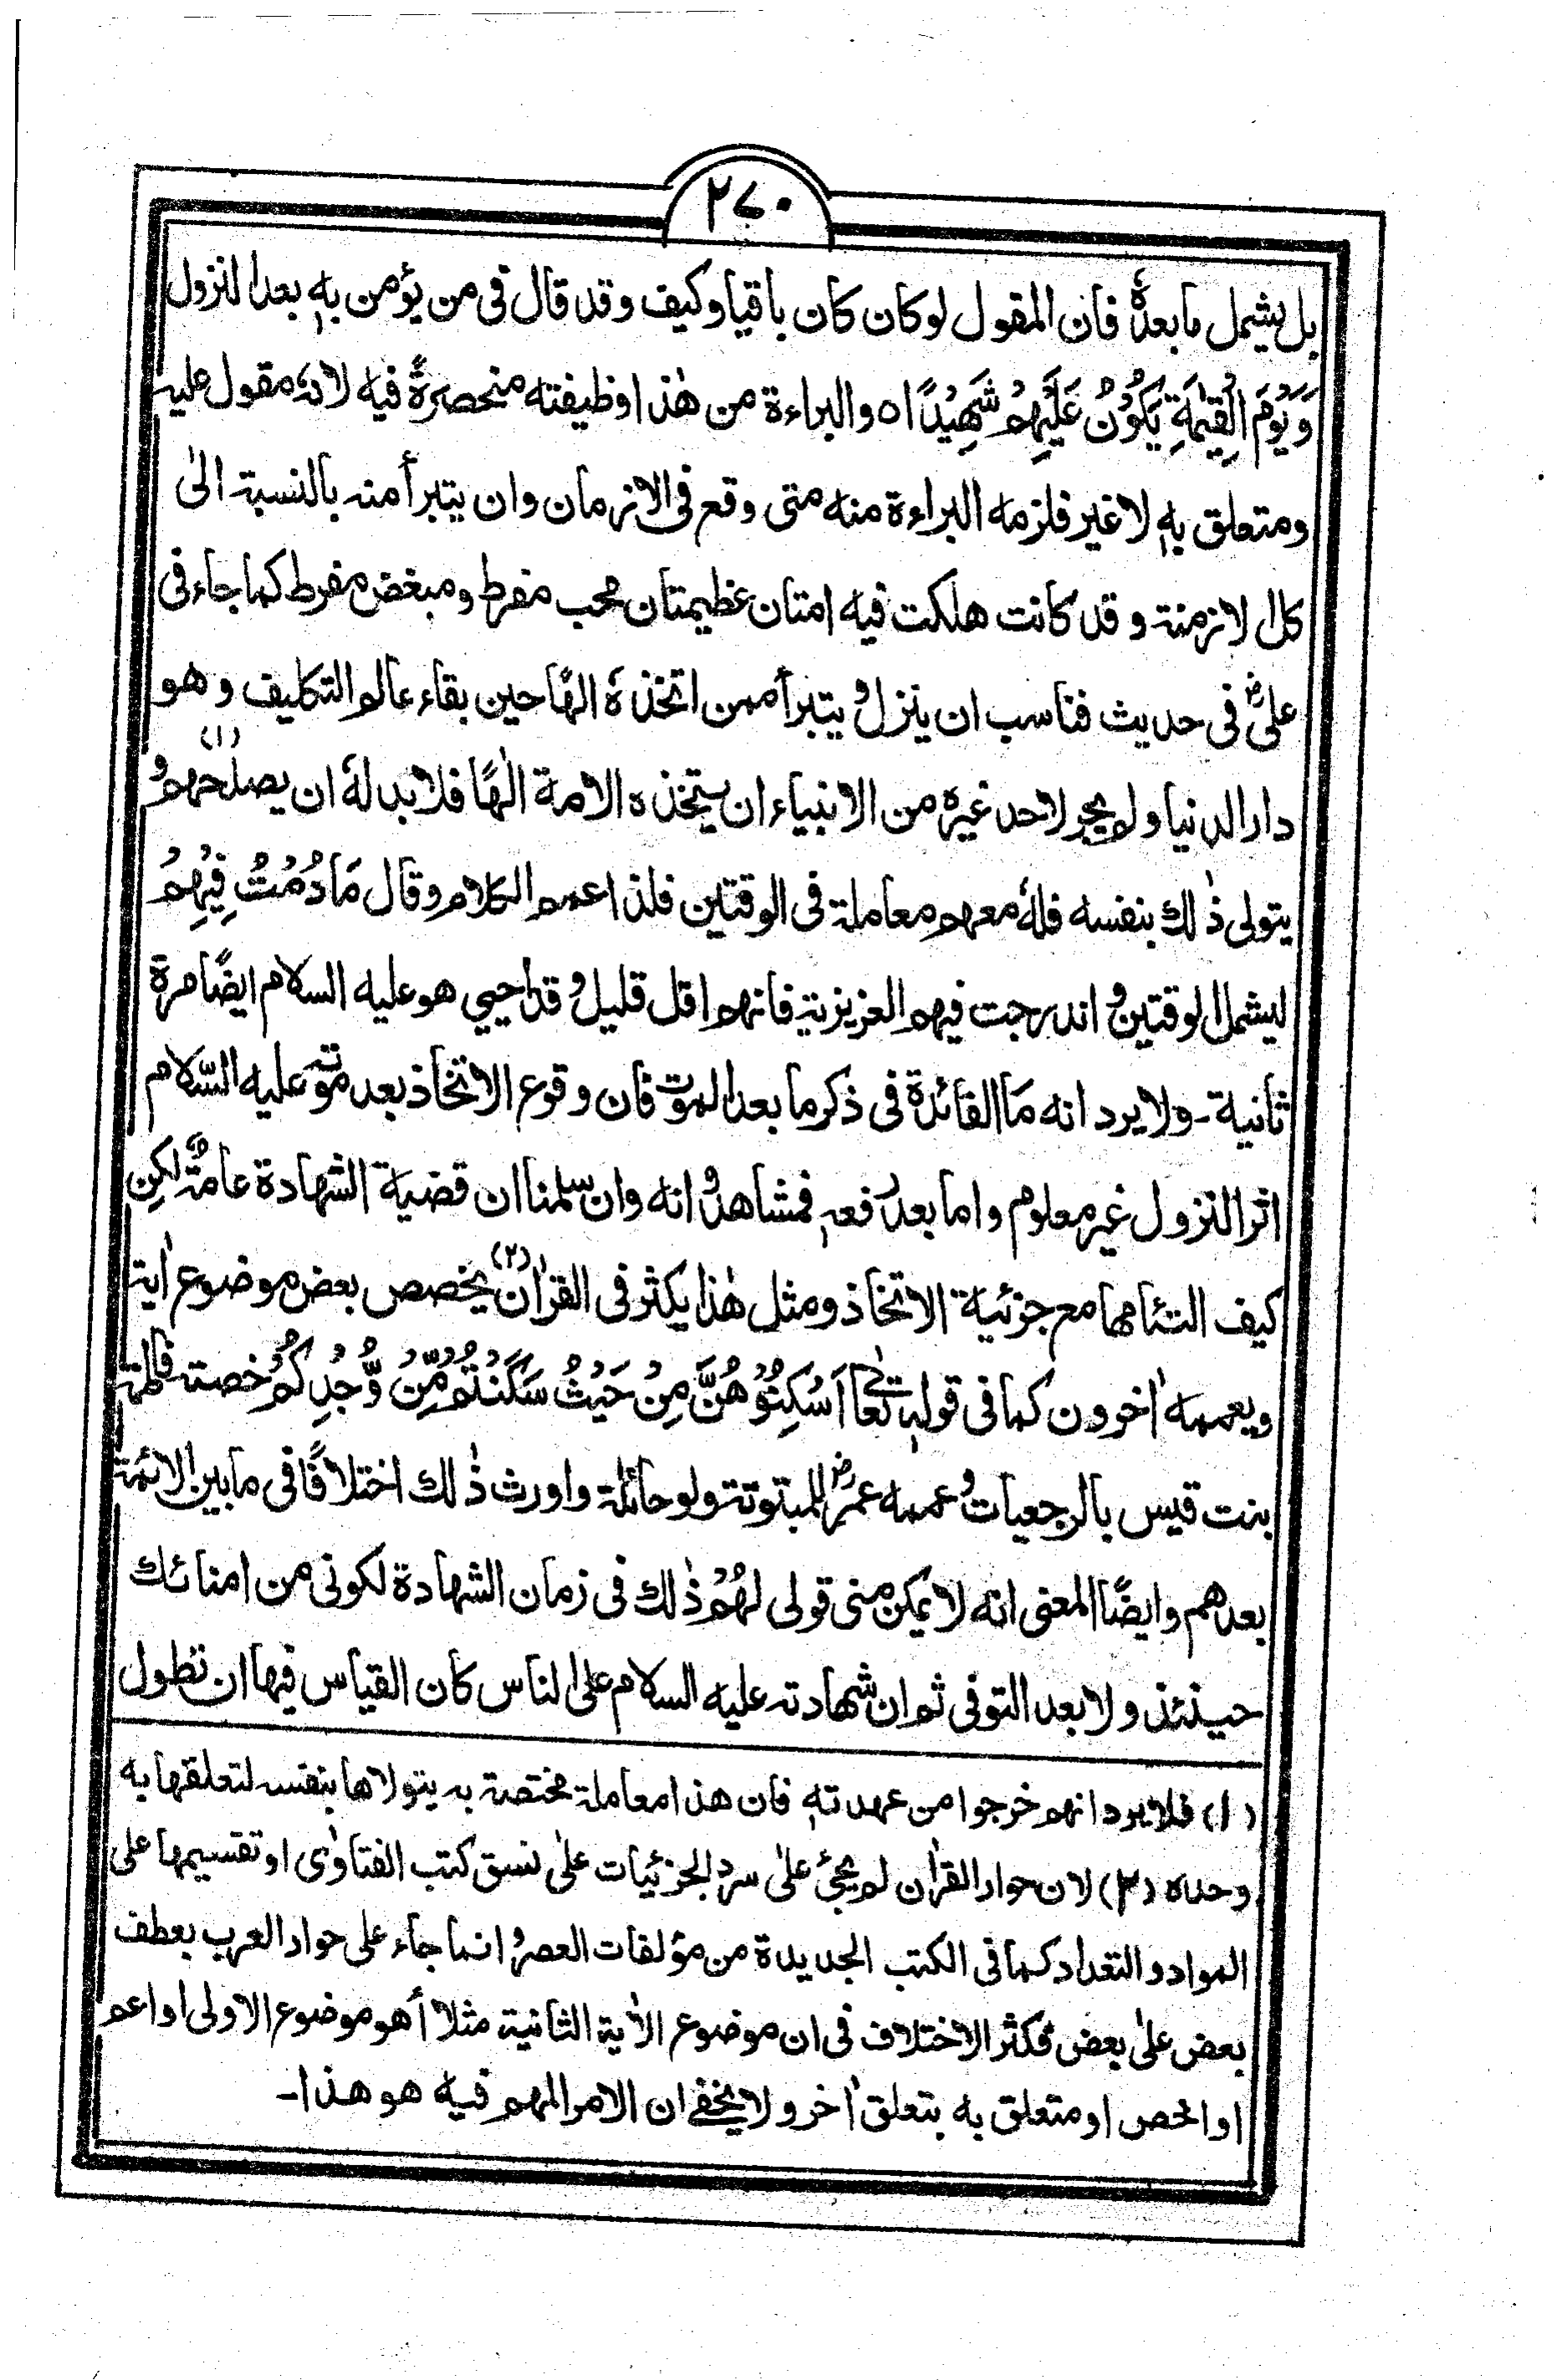 ۲۷۰
بل یشمل مابعدہٗ فان المقول لوکان کان باقیا وکیف وقد قال فی من یؤمن بہٖ بعد النزول
وَیَوْمَ الْقِیٰمَةِ یَکُوْنُ عَلَیْهِمْ شَهِیْدًا٥ والبراءة من هٰذا وظیفته منحصرةٌ فیه لانهٗ مقول علیہ
ومتعلق بہٖ لاغیر فلزمه البراءة منه متی وقع فی الازمان وان یتبرأ منہ بالنسبة الیٰ
کل الازمنة وقد کانت هلکت فیه امتان عظیمتان محب مفرط ومبغض مفرط کما جاء فی
علیؓ فی حدیث فناسب ان ینزل ویتبرأ ممن اتخذہٗ الٰهًا حین بقاء عالم التکلیف وهو
دار الدنیا ولم یجر لاحد غیرہٖ من الانبیاء ان یتخذہ الامة الٰهًا فلا بد لهٗ ان یصلحهم(۱) و
یتولی ذٰلك بنفسه فلهٗ معهم معاملة فی الوقتین فلذا عمم الکلام وقال مَا دُمْتُ فِیْهِمْ
لیشمل الوقتین و اندرجت فیهم العزیزیة فانهم اقل قلیل و قد احیی هو علیه السلام ایضًا مرة
ثانیة۔ ولا یرد انه مَا الفائدة فی ذکر ما بعد الموت فان وقوع الاتخاذ بعد موته علیه السّلام
اثر النزول غیر معلوم واما بعد رفعہٖ فمشاهد و انه وان سلمنا ان قضیة الشهادة عامة لکن
کیف التئامها مع جزئیة الاتخاذ ومثل هٰذا یکثر فی القرآن(۲) یخصص بعض موضوع اٰیة
ویعممه اٰخرون کما فی قولہٖ تعالیٰ اَسْکِنُوْهُنَّ مِنْ حَیْثُ سَکَنْتُمْ مِّنْ وُّجْدِکُمْ خصتہ فاطمة
بنت قیس بالرجعیات و عممه عمرؓ للمبتوتة ولو حائلة واورث ذٰلك اختلافًا فی ما بین الائمة
بعدهم وایضًا المعنی انه لا یمکن منی قولی لهُمْ ذٰلك فی زمان الشهادة لکونی من امنائك
حینئذ ولا بعد التوفی ثم ان شهادته علیه السلام علی الناس کان القیاس فیها ان تطول
(۱) فلا یرد انهم خرجوا من عهدتهٖ فان هذا معاملة مختصة به یتولاها بنفسه لتعلقها به
وحدہ (۲) لان حوار القرآن لم یجئ علیٰ سرد الجزئیات علیٰ نسق کتب الفتاوٰی او تقسیمها علی
المواد والتعداد کما فی الکتب الجدیدة من مؤلفات العصر و انما جاء علی حوار العرب بعطف
بعض علیٰ بعض فکثر الاختلاف فی ان موضوع الاٰیة الثانیة مثلا أهو موضوع الاولی او اعم
او اخص او متعلق به بتعلق اٰخر ولا یخفٰے ان الامر المهم فیه هو هذا۔